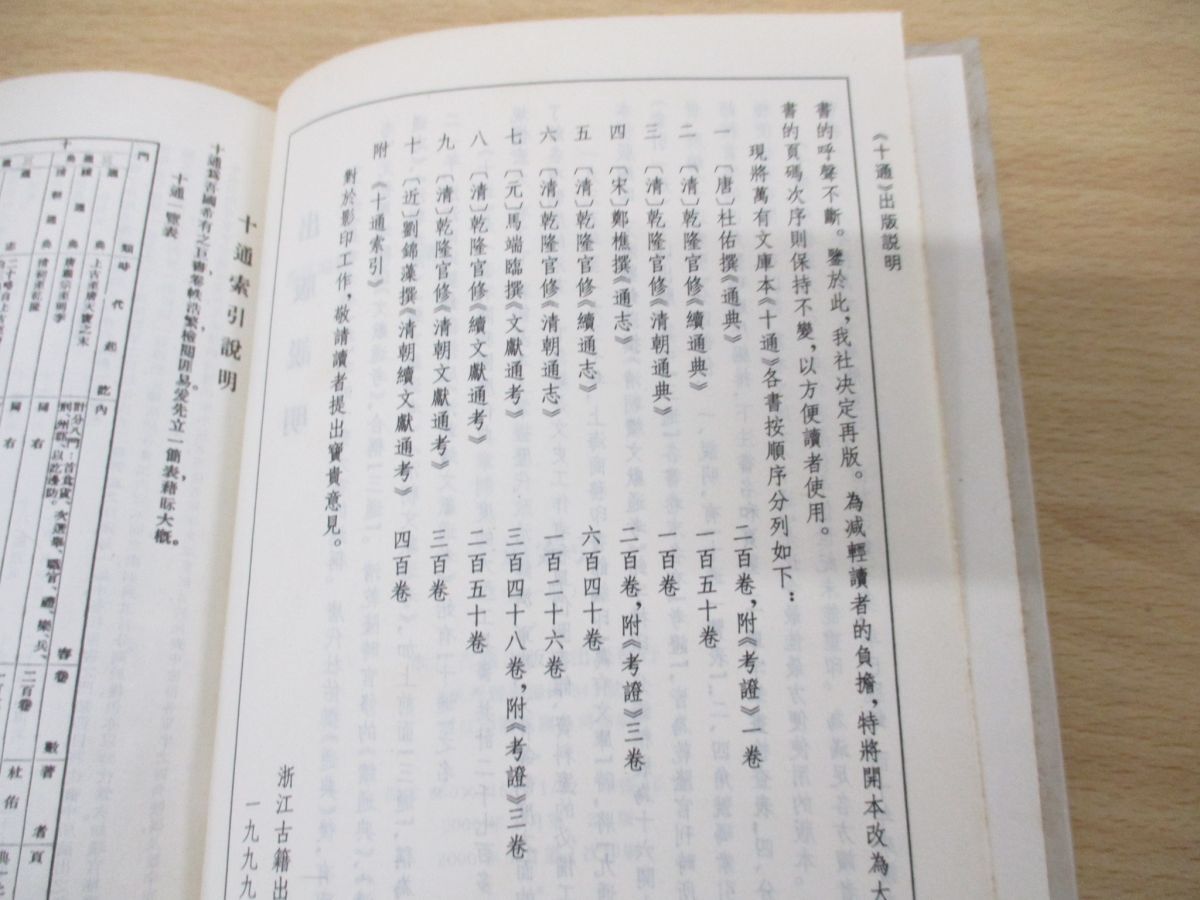 《十通》出版説明
書的呼聲不斷。鑒於此，我社決定再版。為減輕讀者的負擔，特將開本改為大
書的頁碼次序則保持不變，以方便讀者使用。
現將萬有文庫本《十通》各書按順序分列如下：
一〔唐〕杜佑撰《通典》 二百卷，附《考證》一卷
二〔清〕乾隆官修《續通典》 一百五十卷
三〔清〕乾隆官修《清朝通典》 一百卷
四〔宋〕鄭樵撰《通志》 二百卷，附《考證》三卷
五〔清〕乾隆官修《續通志》 六百四十卷
六〔清〕乾隆官修《清朝通志》 一百二十六卷
七〔元〕馬端臨撰《文獻通考》 三百四十八卷，附《考證》三卷
八〔清〕乾隆官修《續文獻通考》 二百五十卷
九〔清〕乾隆官修《清朝文獻通考》 三百卷
十〔近〕劉錦藻撰《清朝續文獻通考》 四百卷
附《十通索引》
對於影印工作，敬請讀者提出寶貴意見。
浙江古籍出
一九九九
十通索引說明
十通為吾國希有之巨書卷帙浩繁檢閱匪易爰先立一簡表藉眎大概。
十通一覽表
門類 時代起訖 內容 卷數 著者 頁
通典 上古至唐天寶之末 計分八門：首食貨、次選舉、職官、禮、樂、兵、刑、州郡、以訖邊防。 二百卷 杜佑
續通典 唐肅宗至明季 同右
清朝通典 清初至乾隆 同右